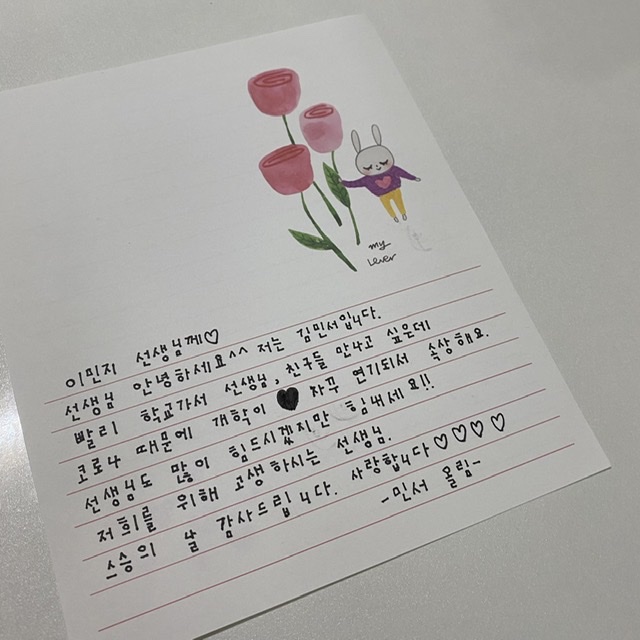 my
Lever
이민지 선생님께♡
선생님 안녕하세요^^ 저는 김민서입니다.
빨리 학교가서 선생님, 친구들 만나고 싶은데
코로나 때문에 개학이 ♥ 자꾸 연기되서 속상해요.
선생님도 많이 힘드시겠지만 힘내세요!!
저희를 위해 고생하시는 선생님.
스승의 날 감사드립니다. 사랑합니다♡♡♡♡
-민서 올림-